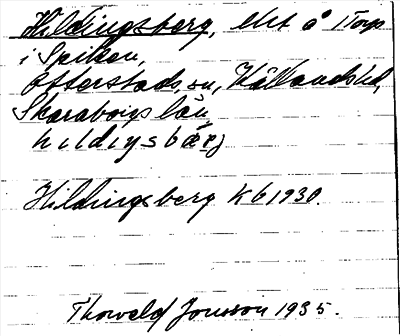 Hildingsberg, lht å Torp
i Spiken,
Otterstads sn, Kållands hd,
Skaraborgs län,
hildiŋsbärj
Hildingsberg Kb 1930.
Thorvald Jonsson 1935.